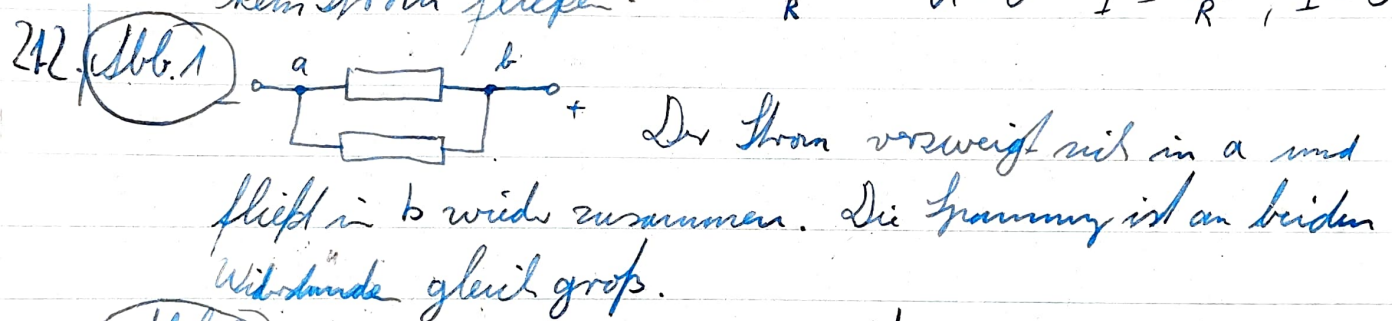 kein Strom fließen. R U 0 I = R , I 0
212. Abb. 1 a b
+ Der Strom verzweigt sich in a und
fließt in b wieder zusammen. Die Spannung ist an beiden
Widerstände gleich groß.